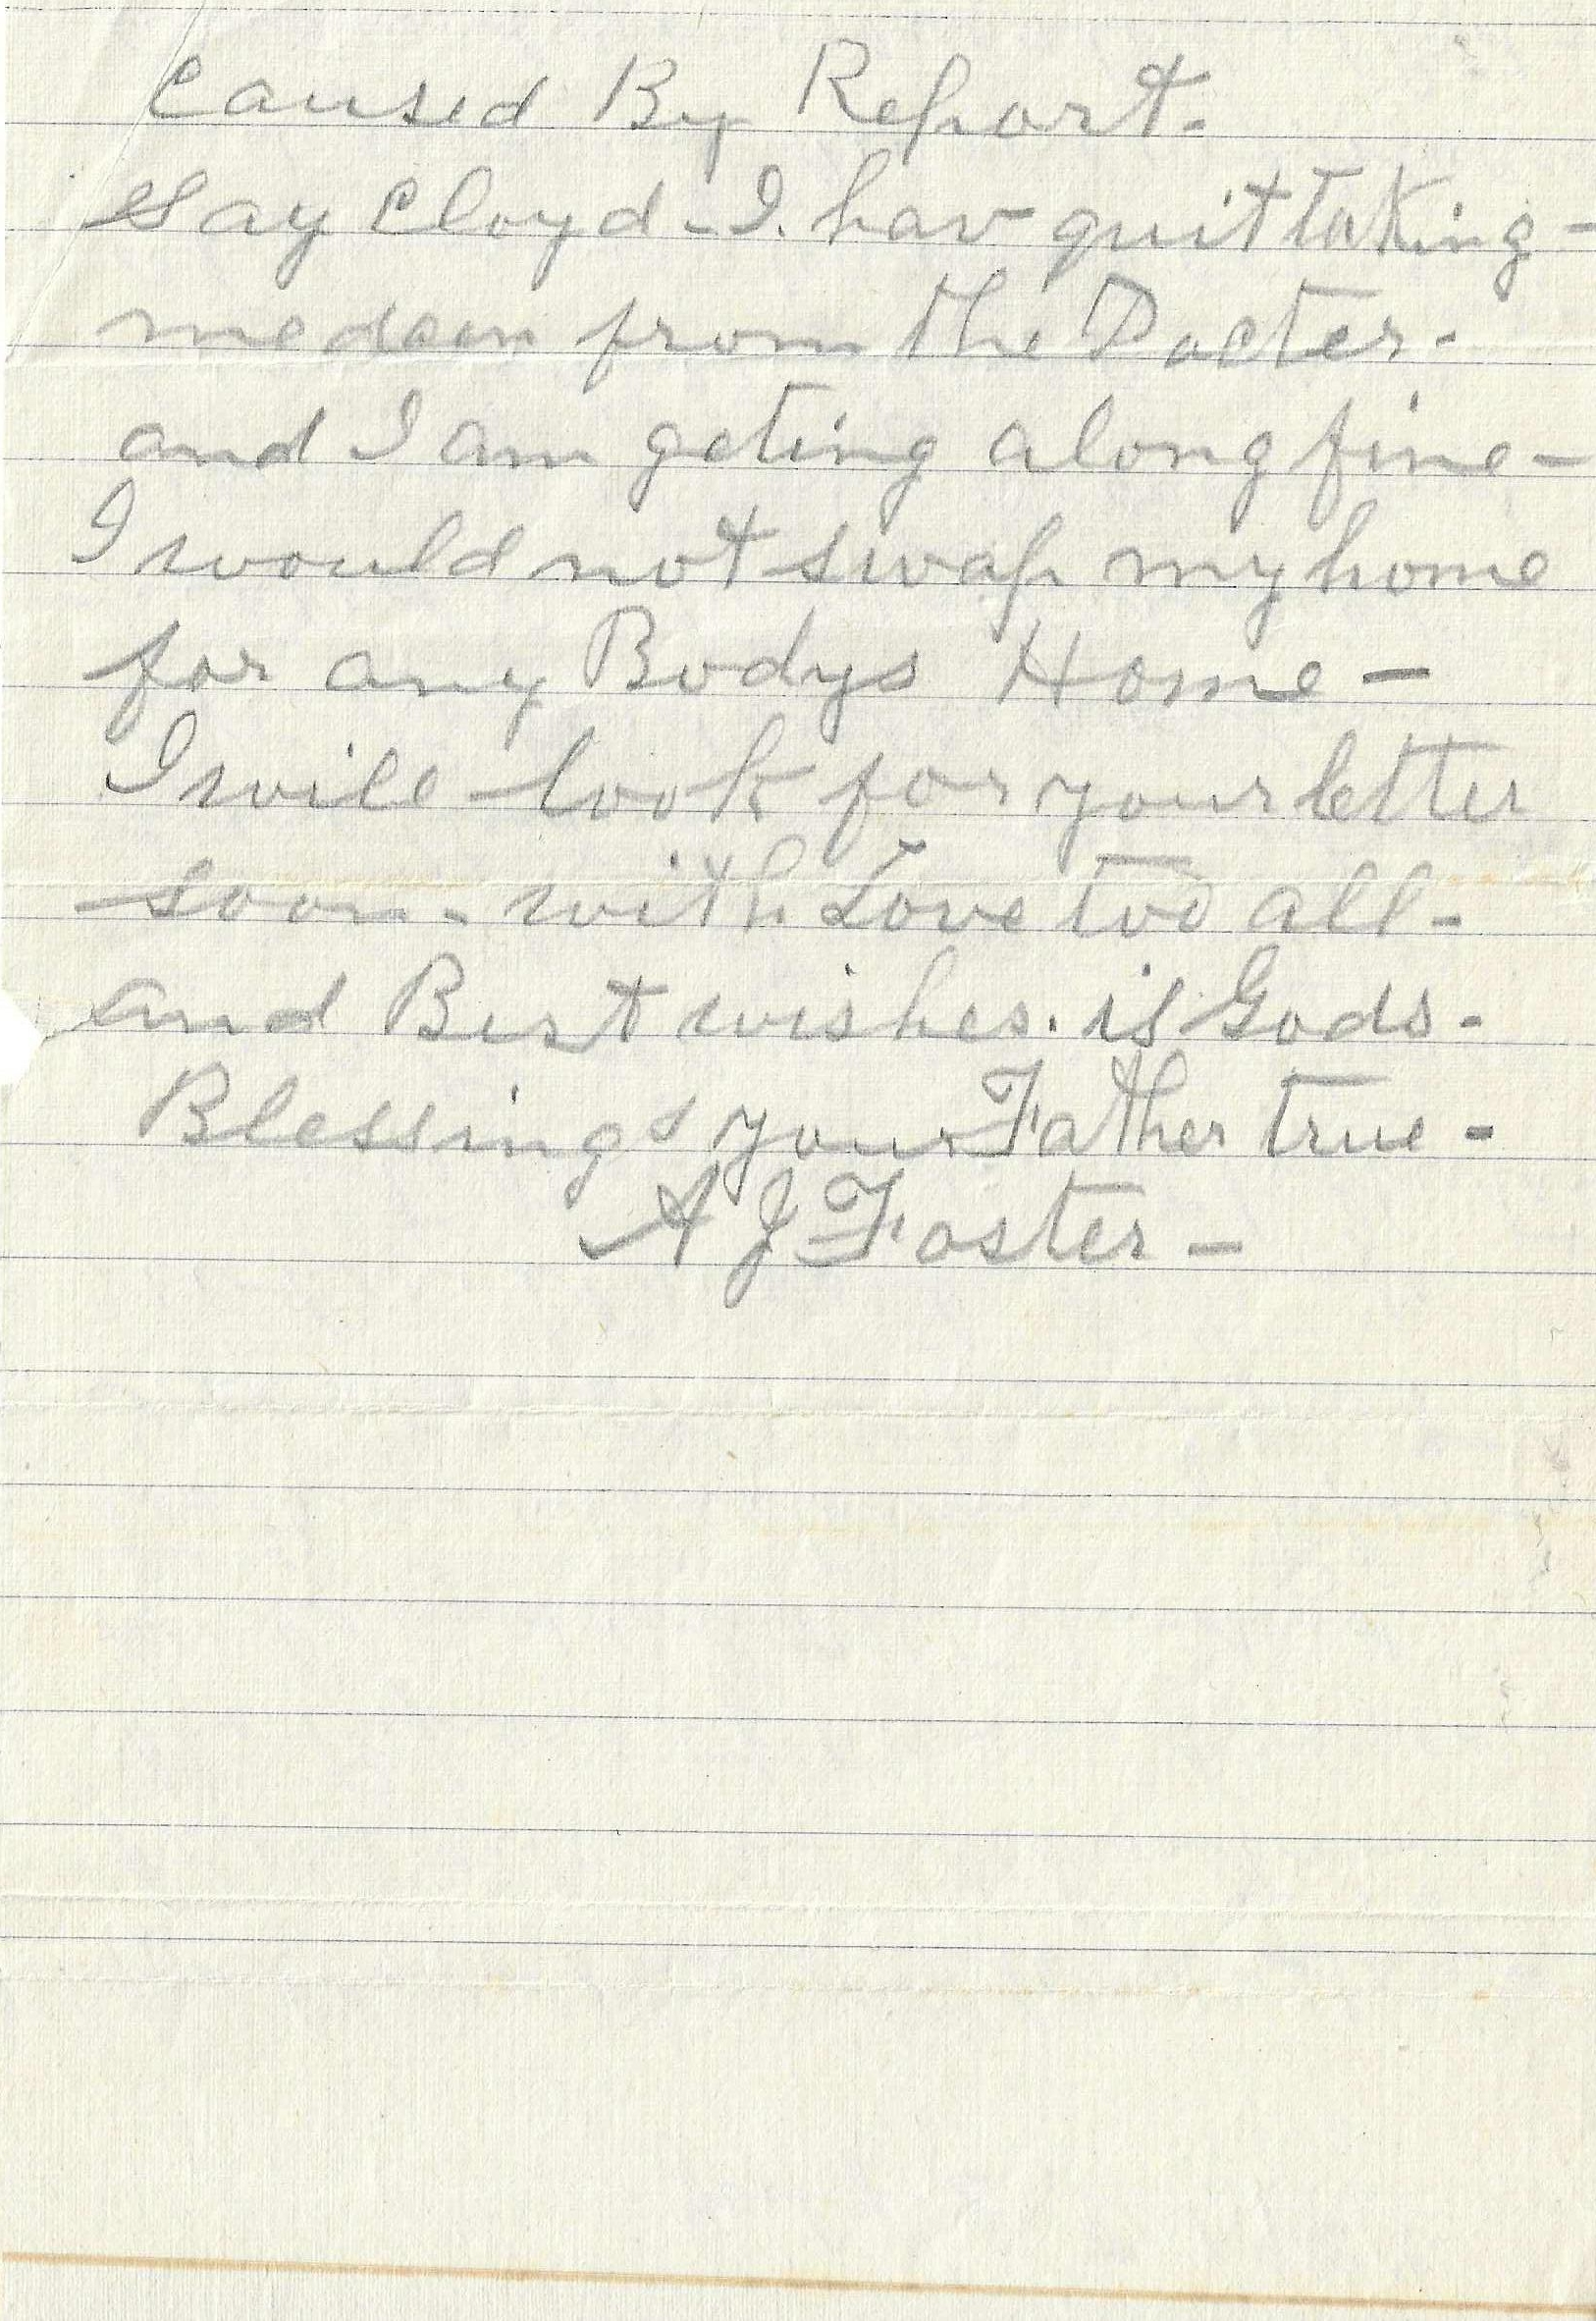 Caused By Report.
Say Cloyd - I. hav quit taking -
medcen from the Docter.
and I am geting along fine -
I would not swap my home
for any Bodys Home -
I will look for your letter
soon. with Love too all -
and Best wishes. is Gods.
Blessings your Father true -
A J Foster -